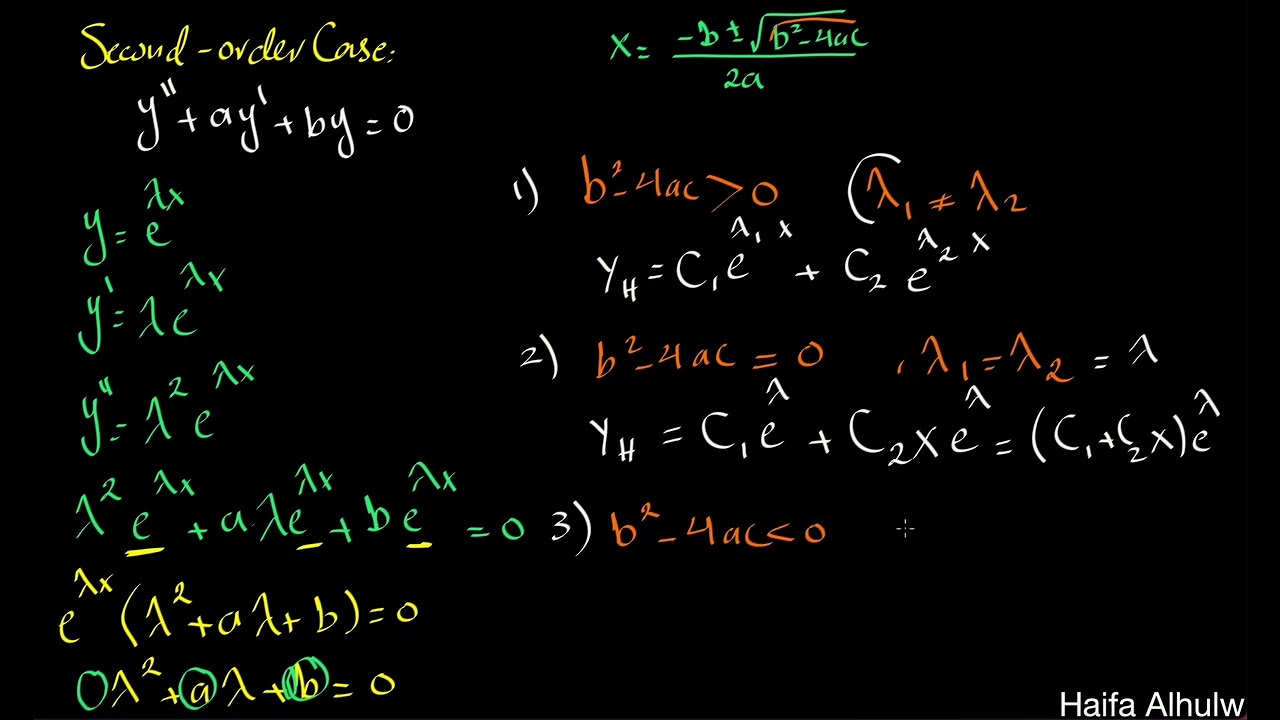 Second-order Case:
y''+ay'+by=0
y=e^λx
y'=λe^λx
y''=λ²e^λx
λ²e^λx+aλe^λx+be^λx=0
e^λx(λ²+aλ+b)=0
λ²+aλ+b=0
x=(-b±√(b²-4ac))/2a
1) b²-4ac>0 (λ₁≠λ₂
Y_H=C₁e^λ₁x+C₂e^λ₂x
2) b²-4ac=0 , λ₁=λ₂=λ
Y_H=C₁e^λ+C₂xe^λ=(C₁+C₂x)e^λ
3) b²-4ac<0
Haifa Alhulw